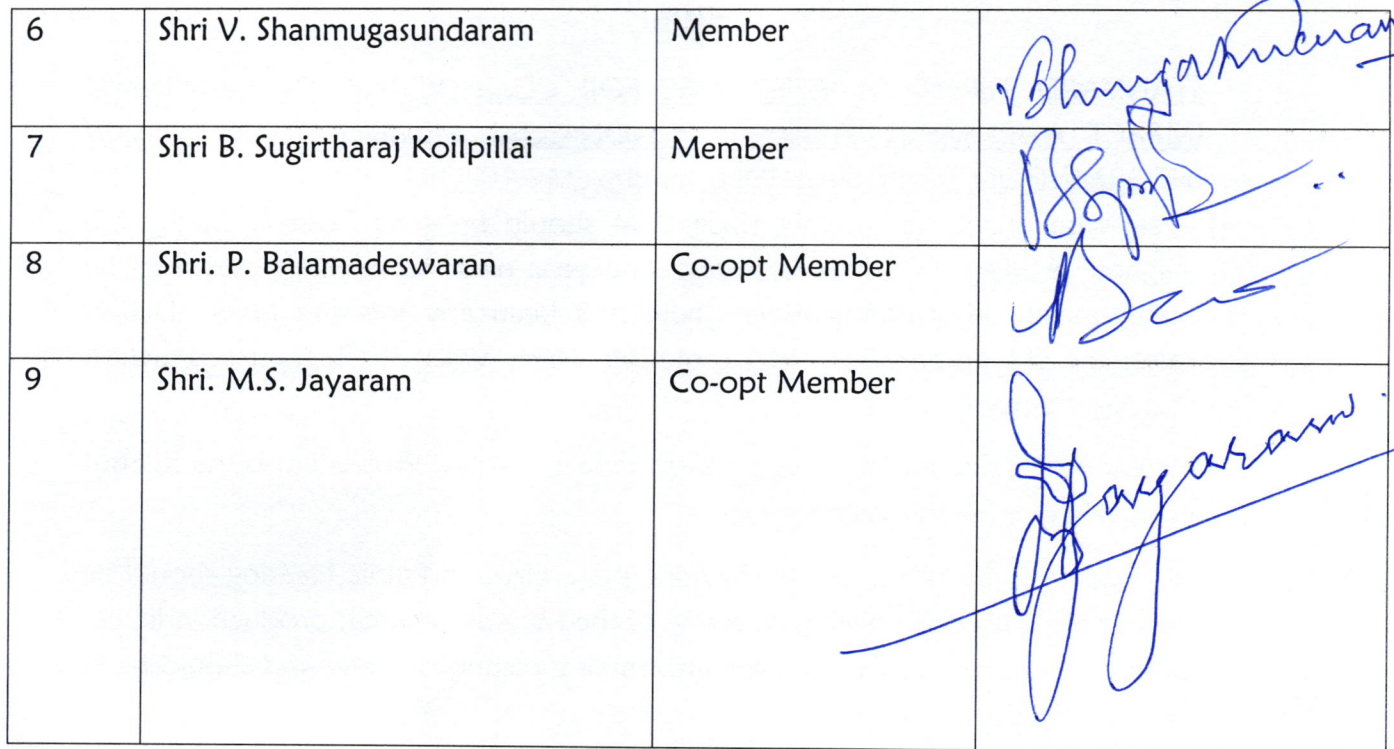 6 Shri V. Shanmugasundaram Member
7 Shri B. Sugirtharaj Koilpillai Member
8 Shri. P. Balamadeswaran Co-opt Member
9 Shri. M.S. Jayaram Co-opt Member Jayaram